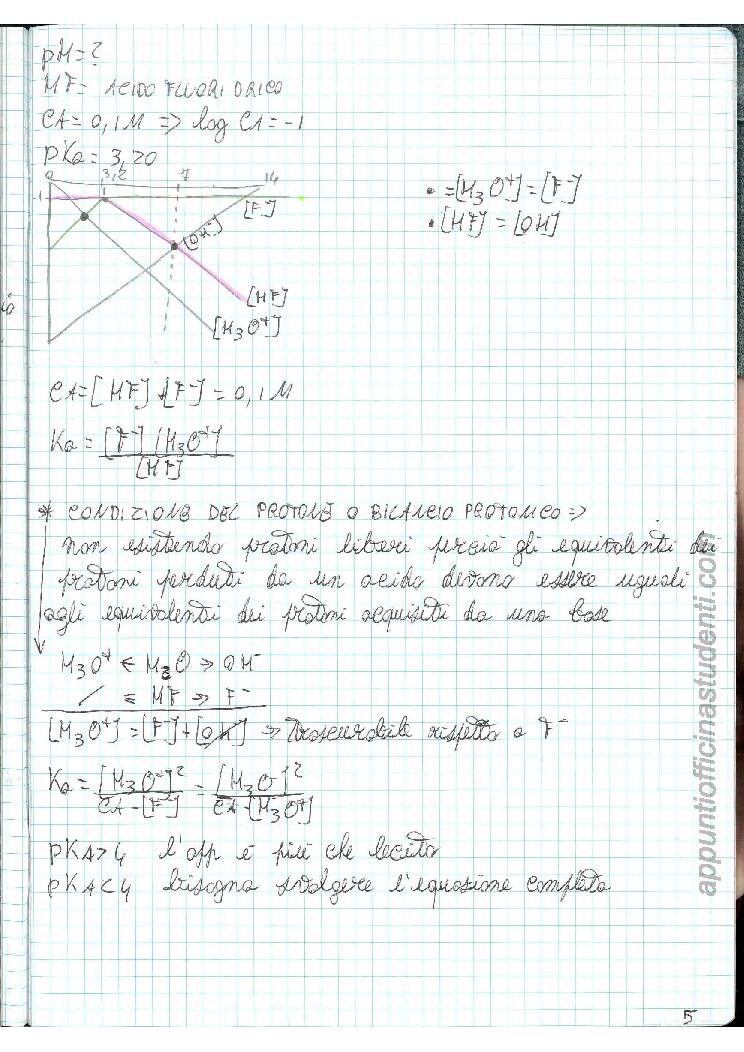 pH = ?
HF = ACIDO FLUORIDRICO
CA = 0,1M => log CA = -1
PKa = 3,20
0 3,2 7 14
-1
• = [H3O+] = [F-]
• [HF] = [OH]
[F-]
[OH-]
[HF]
[H3O+]
CA = [HF] + [F-] = 0,1M
Ka = [F-] [H3O+]
[HF]
* CONDIZIONE DEL PROTONE O BILANCIO PROTONICO =>
non esistendo protoni liberi perciò gli equivalenti dei
protoni perduti da un acido devono essere uguali
agli equivalenti dei protoni acquisiti da una base
H3O+ <= H2O => OH-
/ <= HF => F-
[H3O+] = [F-] + [OH] => Trascurabile rispetto a F-
Ka = [H3O+]2 = [H3O]2
CA - [F-] CA - [H3O+]
pKA>4 l'app è più che lecita
pKA<4 bisogna svolgere l'equazione completa
5
appuntiofficinastudenti.com